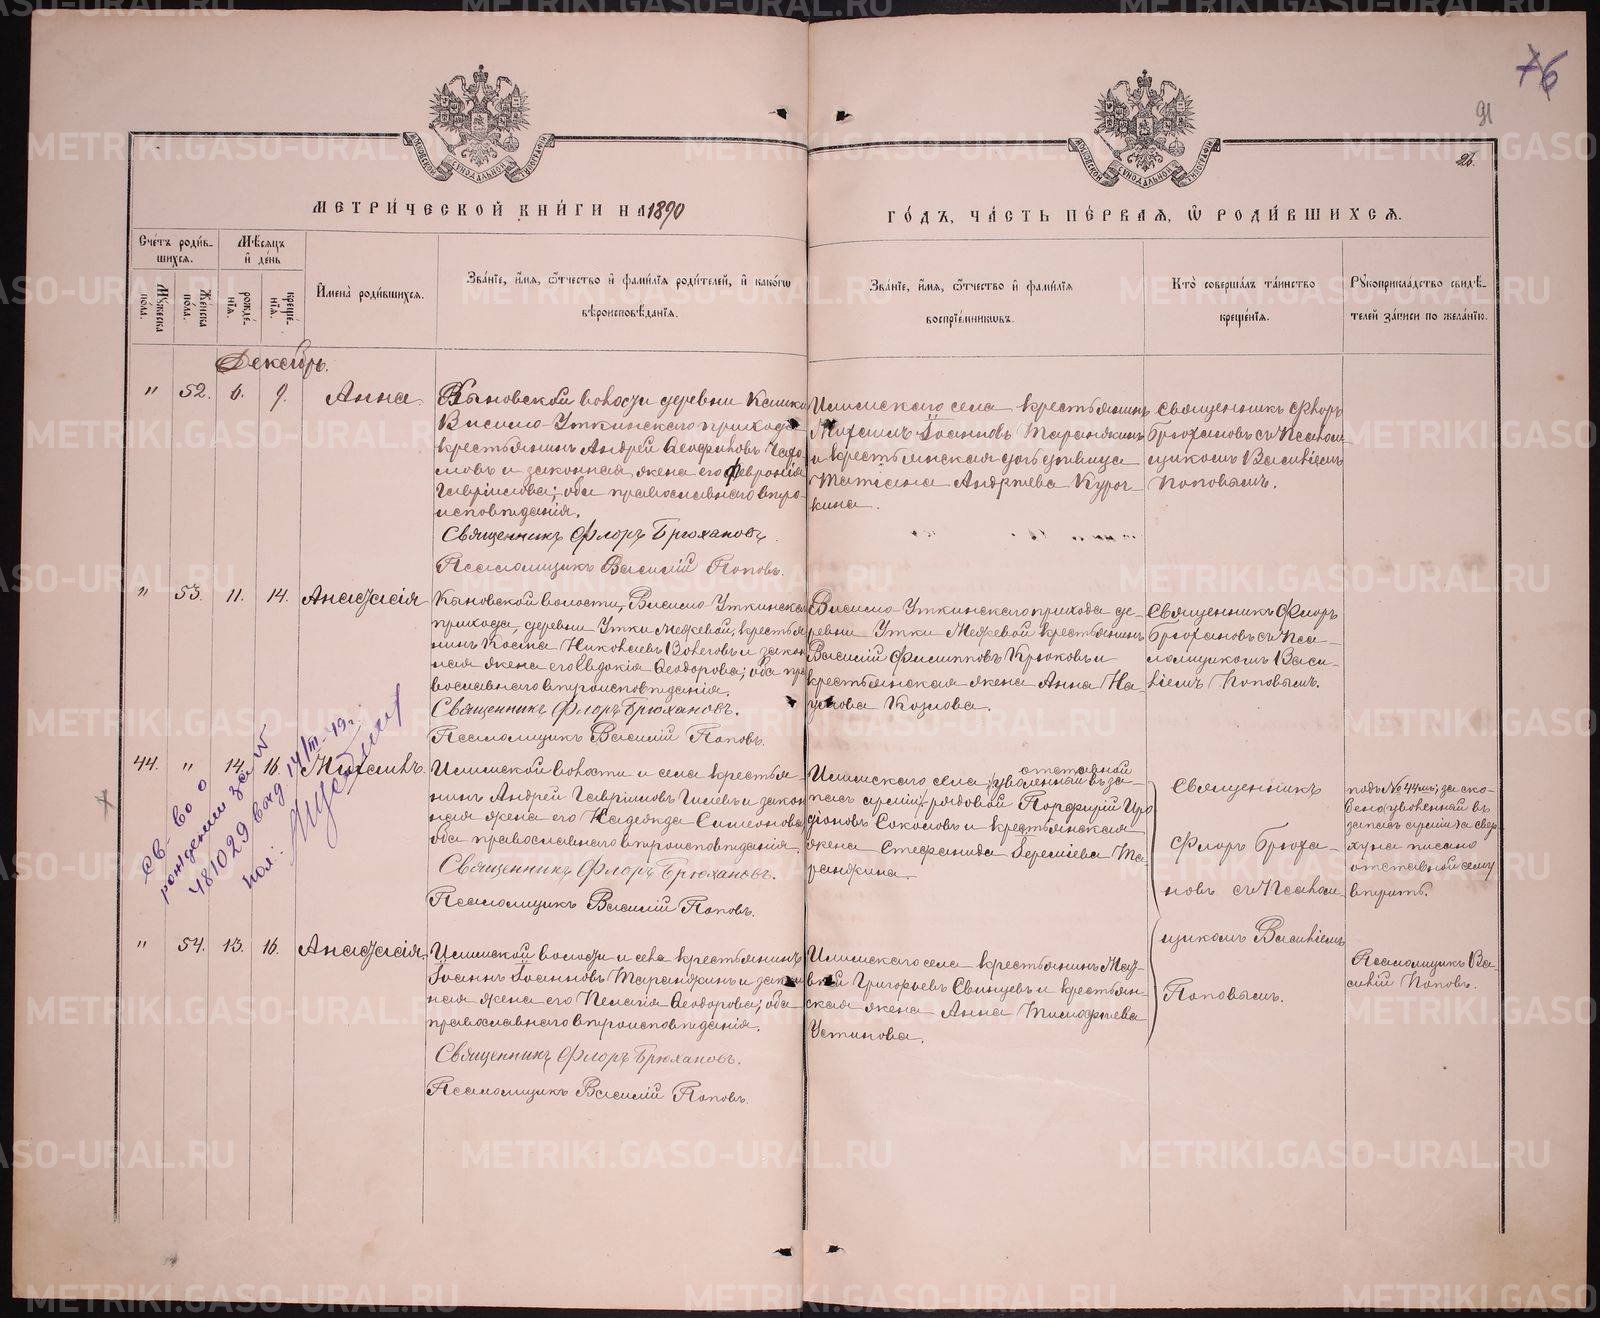 76
91
26.
МЕТРИ́ЧЕСКОЙ КНИ́ГИ НА 1890
ГО́ДЪ, ЧА́СТЬ ПЕ́РВАЯ, Ѡ РОДИ́ВШИХСЯ.
Сче́тъ роди́вшихся.
Мꙋ́жеска по́ла.
Же́нска по́ла.
Мѣ́сяцъ и҆ де́нь
рожде́нїѧ.
креще́нїѧ.
И҆мена̀ роди́вшихся.
Зва́нїе, и҆́мѧ, ѻ҆́тчество и҆ фами́лїѧ роди́телей, и҆ како́гѡ
вѣроисповѣ́данїѧ.
Зва́нїе, и҆́мѧ, ѻ҆́тчество и҆ фами́лїѧ
воспрїе́мникѡвъ.
Кто̀ соверша́лъ та́инство
креще́нїѧ.
Рꙋкоприкла́дство свидѣ́-
телей за́писи по жела́нїю.
Декабрь.
" 52. 6. 9. Анна.
Кыновской волости деревни Кашки
Висимо-Уткинскаго прихода
крестьянинъ Андрей Ѳеофиловъ
и законная жена его Феѵронія
Гавріилова; оба православнаго вѣро-
исповѣданія.
Священникъ Флоръ Брюхановъ.
Псаломщикъ Василій Поповъ.
Илимскаго села крестьянинъ
Михаилъ Іоанновъ Таранжинъ
и крестьянская дочь дѣвица
Татіана Андреева Куроч-
кина.
Священникъ Флоръ
Брюхановъ съ Псалом-
щикомъ Василіемъ
Поповымъ.
" 53. 11. 14. Анастасія
Кыновской волости, Висимо-Уткинскаго
прихода, деревни Утки Межевой, крестья-
нинъ Косма Николаевъ и закон-
ная жена его Евдокія Ѳеодорова; оба пра-
вославнаго вѣроисповѣданія.
Священникъ Флоръ Брюхановъ.
Псаломщикъ Василій Поповъ.
Висимо-Уткинскаго прихода де-
ревни Утки Межевой крестьянинъ
Василій Филипповъ Крюковъ и
крестьянская жена Анна На-
умова Козлова.
Священникъ Флоръ
Брюхановъ съ Пса-
ломщикомъ Васи-
ліемъ Поповымъ.
44. " 14. 16. Михаилъ.
Илимской волости и села крестья-
нинъ Андрей Гавріиловъ и закон-
ная жена его Надежда Симеонова
оба православнаго вѣроисповѣданія.
Священникъ Флоръ Брюхановъ.
Псаломщикъ Василій Поповъ.
отставной
Илимскаго села, уволенный въ за-
пасъ арміи рядовой Порфирій Иро-
діоновъ Соколовъ и крестьянская
жена Стефанида Іереміева Та-
ранжина.
Священникъ
Флоръ Брюха-
новъ съ Псалом-
щикомъ Василіемъ
Поповымъ.
подъ № 44мъ; за ско-
бено „уволенный въ
запасъ арміи“ а свер-
ху написано
отставной сему
вѣрить.
Псаломщикъ Ва-
силій Поповъ.
св-во о
рождении за №
481029 выд 14/III-49г.
" 54. 13. 16. Анастасія.
Илимской волости и села крестьянинъ
Іоаннъ Іоанновъ Таранжинъ и закон-
ная жена его Пелагія Ѳеодорова; оба
православнаго вѣроисповѣданія.
Священникъ Флоръ Брюхановъ.
Псаломщикъ Василій Поповъ.
Илимскаго села крестьянинъ Мат-
вѣй Григорьевъ Свинцевъ и крестьян-
ская жена Анна Тимофеева
Устинова.
METRIKI.GASO-URAL.RU